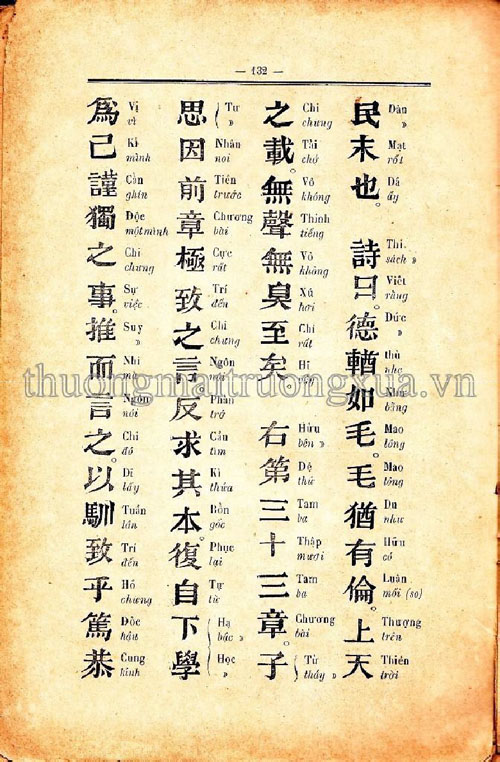 — 132 —
民末也。詩曰。德輶如毛。毛猶有倫。上天
Dân »
Mạt rốt
Dã ấy
Thi. sách »
Viết rằng
Đức »
Như bằng
Mao lông
Mao lông
Du như
Hữu có
Luân mối (so)
Thượng trên
Thiên trời
之載。無聲無臭至矣。右第三十三章。子
Chi chưng
Tải chở
Vô không
Thinh tiếng
Vô không
Xú hơi
Chí rất
Hữu bên »
Đệ thứ
Tam ba
Thập mươi
Tam ba
Chương bài
Tử thầy »
思因前章極致之言。反求其本。復自下學
Tư »
Nhân nơi
Tiền trước
Chương bài
Cực rất
Trí đến
Chi chưng
Ngôn
Phản trở
Cầu tìm
Kì thửa
Bổn gốc
Phục lại
Tự từ
Hạ bậc »
Học »
爲己謹獨之事。推而言之。以馴致乎篤恭
Vị vì
Kỉ mình
Cẩn ghín
Độc một mình
Chi chưng
Sự việc
Suy »
Nhi mà
Ngôn nói
Chi đó
Dĩ lấy
Tuần lần
Trí đến
Hồ chưng
Đốc hậu
Cung kính
thuongmaitruongxua.vn